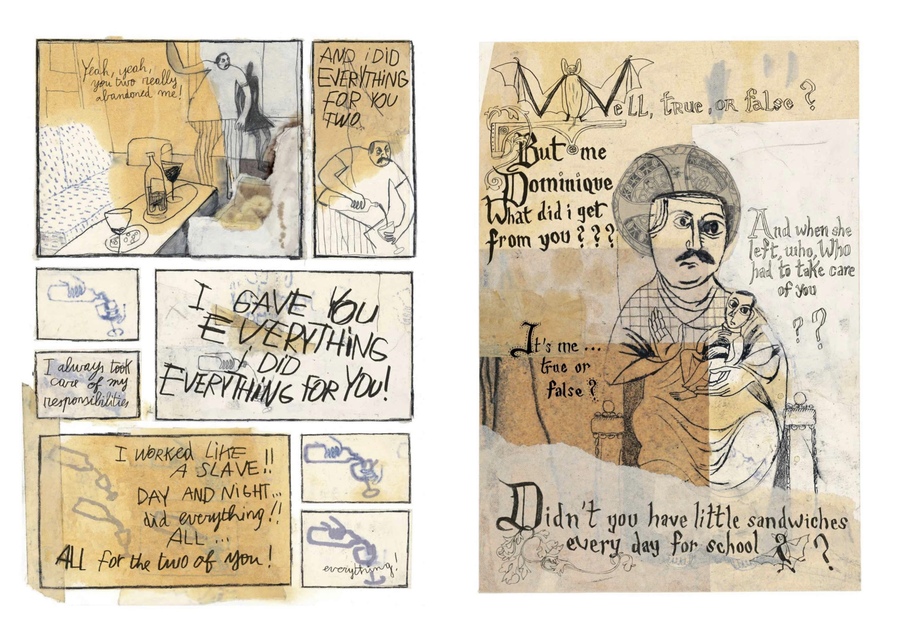 Yeah, yeah,
you two really
abandoned me!
AND i DID
EVERYTHING
FOR YOU
TWO
I GAVE YOU
EVERYTHING
I DID
EVERYTHING FOR YOU!
I always took
care of my
responsibilities
I WORKED LIKE
A SLAVE!!
DAY AND NIGHT...
did everything!!
ALL ...
ALL for the two of you!
everything!
Well, true or false?
But me
Dominique
What did i get
from you???
And when she
left, who, Who
had to take care
of you
??
It's me ...
true or
false?
Didn't you have little sandwiches
every day for school
?